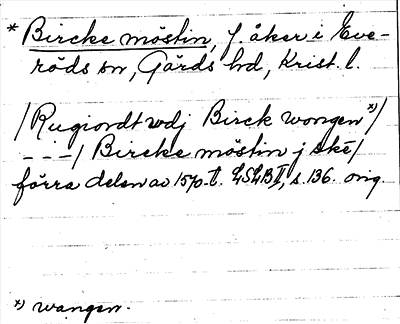 * Bircke möstin, f. åker i Eve-
röds sn, Gärds hd, Krist. l.
/ Rugiordt wdj Birck wongen x) /
- - - / Bircke möstin j skē /
förra delen av 1570-t. LSLB II, s. 136. orig.
x) wangen.